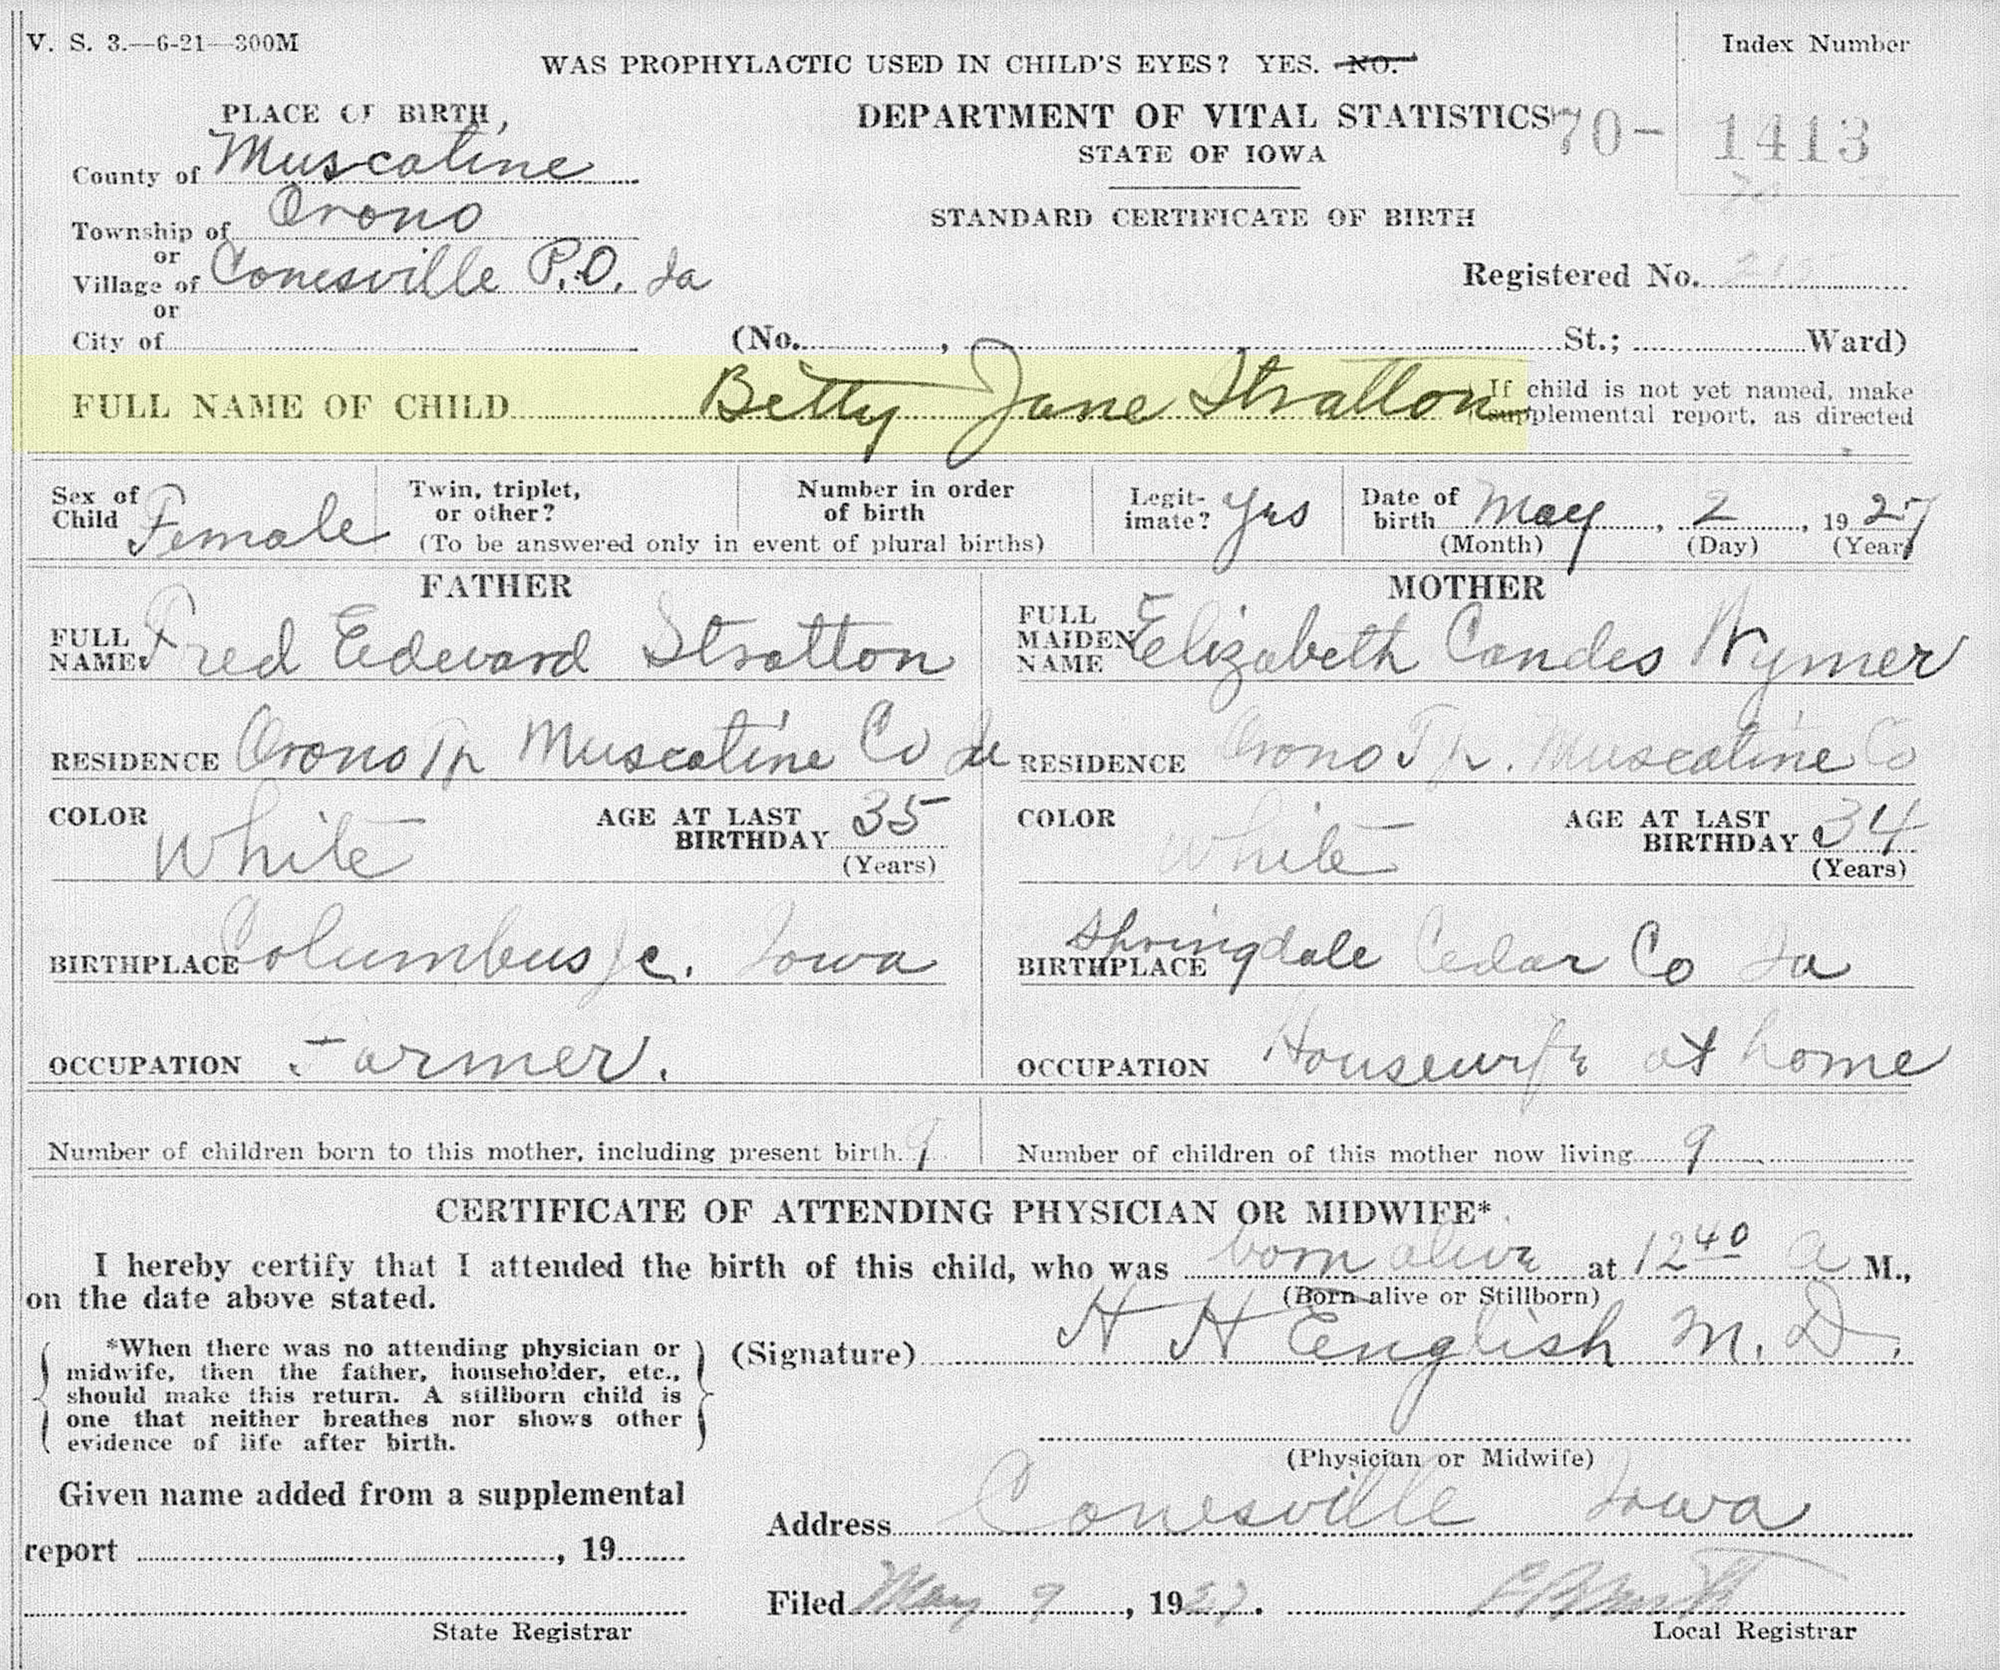 V. S. 3.—6-21—300M
Index Number
WAS PROPHYLACTIC USED IN CHILD'S EYES? YES. NO.
PLACE OF BIRTH
DEPARTMENT OF VITAL STATISTICS
70- 1413
STATE OF IOWA
County of Muscatine
Township of Orono
STANDARD CERTIFICATE OF BIRTH
or
Village of Conesville P.O. Ia
Registered No.
or
City of (No. , St.; Ward)
FULL NAME OF CHILD Betty Jane Stratton
If child is not yet named, make
supplemental report, as directed
Sex of Child Female
Twin, triplet, or other?
Number in order of birth
(To be answered only in event of plural births)
Legit- imate? yes
Date of birth May, 2, 1927
(Month) (Day) (Year)
FATHER
FULL NAME Fred Edward Stratton
RESIDENCE Orono Tp Muscatine Co Ia
COLOR White
AGE AT LAST BIRTHDAY 35
(Years)
BIRTHPLACE Columbus Jc. Iowa
OCCUPATION Farmer.
MOTHER
FULL MAIDEN NAME Elizabeth Candes Wymer
RESIDENCE Orono Tp. Muscatine Co
COLOR White
AGE AT LAST BIRTHDAY 34
(Years)
BIRTHPLACE Springdale Cedar Co Ia
OCCUPATION Housewife at home
Number of children born to this mother, including present birth 9
Number of children of this mother now living 9
CERTIFICATE OF ATTENDING PHYSICIAN OR MIDWIFE*
I hereby certify that I attended the birth of this child, who was born alive at 12 40 A M.,
(Born alive or Stillborn)
on the date above stated.
*When there was no attending physician or
midwife, then the father, householder, etc.,
should make this return. A stillborn child is
one that neither breathes nor shows other
evidence of life after birth.
(Signature) H H English M. D.
(Physician or Midwife)
Given name added from a supplemental
report , 19
Address Conesville Iowa
Filed May 9, 1927.
State Registrar
Local Registrar